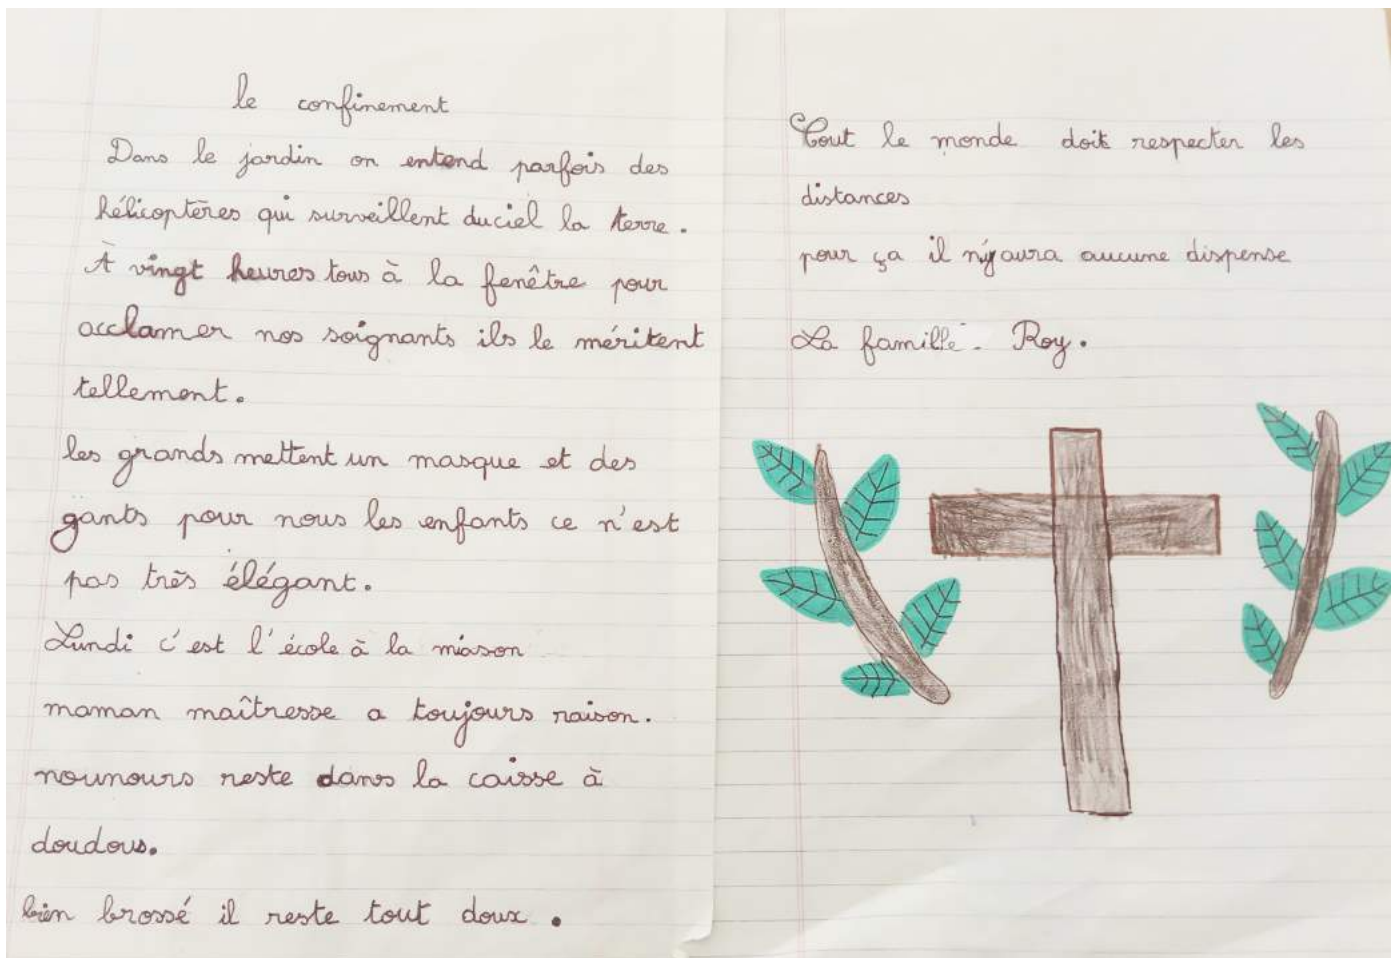 le confinement
Dans le jardin on entend parfois des
hélicoptères qui surveillent du ciel la terre.
À vingt heures tous à la fenêtre pour
acclamer nos soignants ils le méritent
tellement.
les grands mettent un masque et des
gants pour nous les enfants ce n'est
pas très élégant.
Lundi c'est l'école à la miason
maman maîtresse a toujours raison.
nounours reste dans la caisse à
doudous.
bien brossé il reste tout doux.
Tout le monde doit respecter les
distances
pour ça il n'y aura aucune dispense
La famille. Roy.